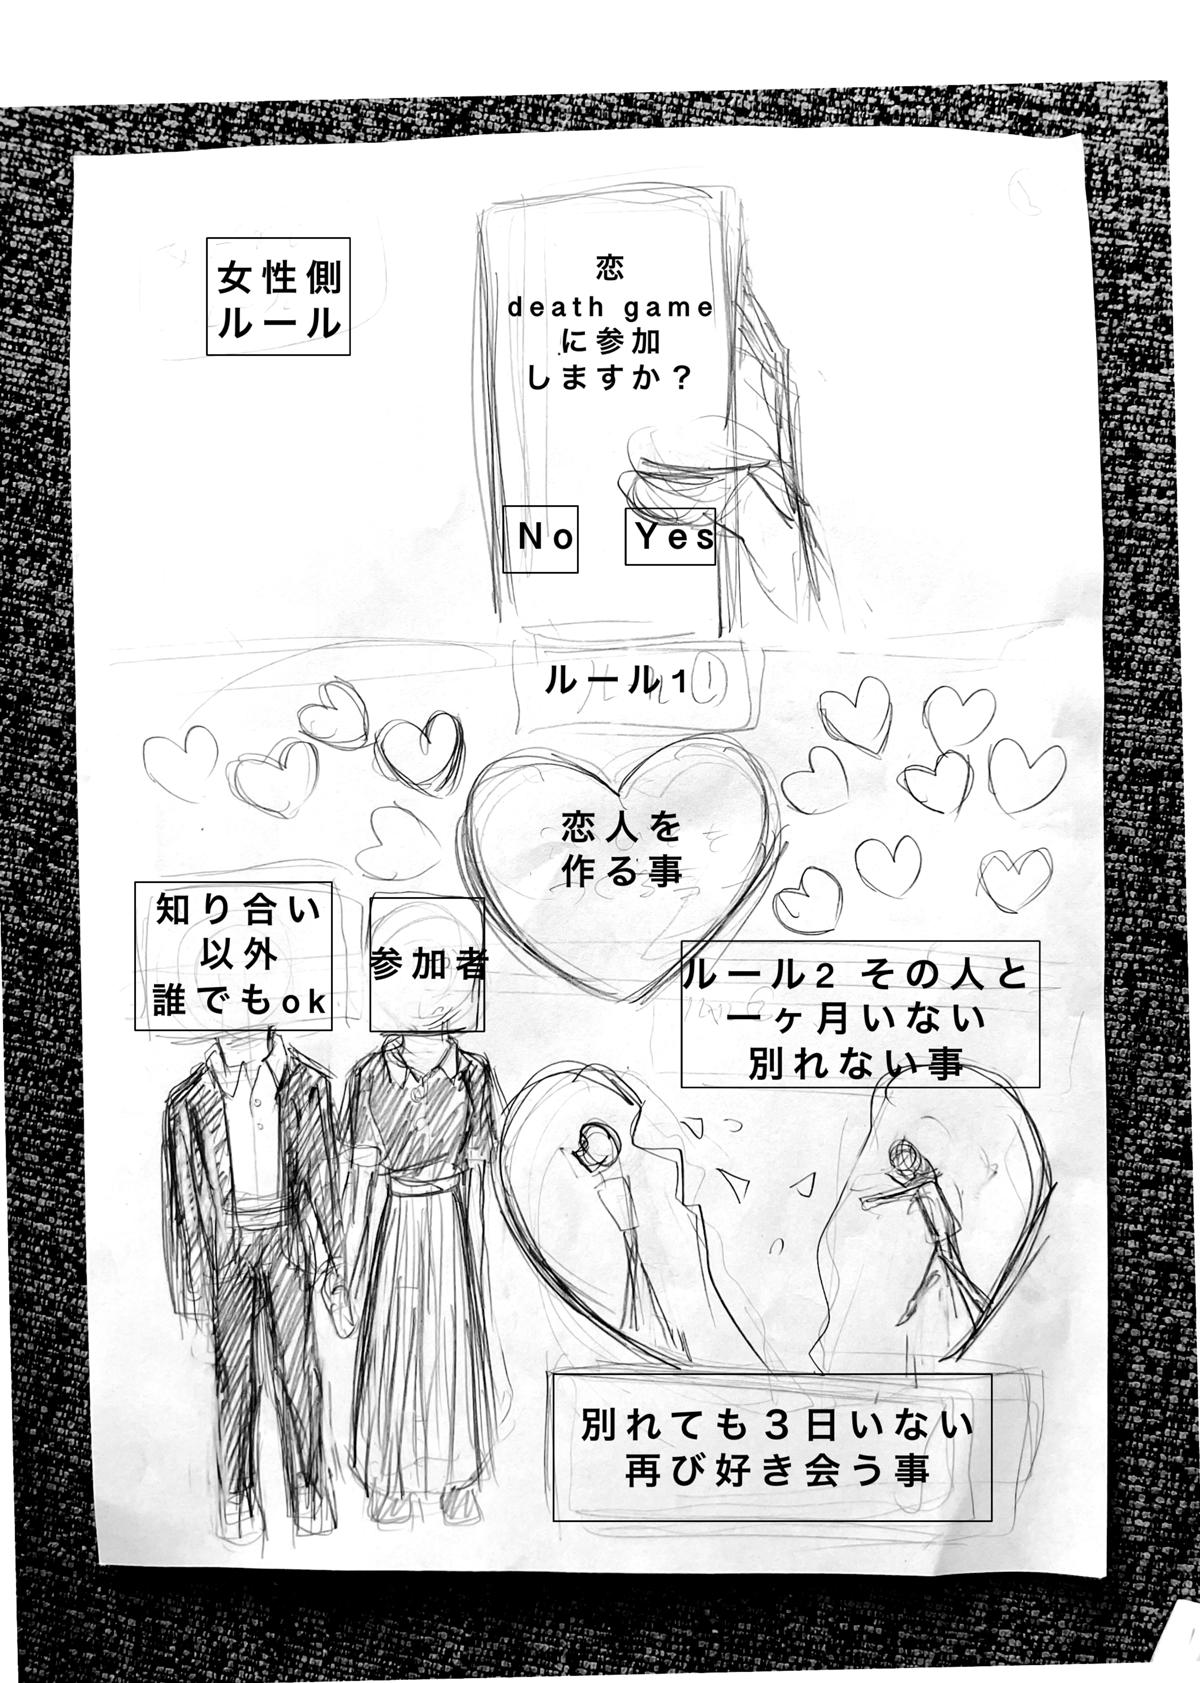 女性側
ルール
恋
death game
に参加
しますか？
No
Yes
ルール1
恋人を
作る事
知り合い
以外
誰でもok
参加者
ルール2 その人と
一ヶ月いない
別れない事
別れても3日いない
再び好き会う事